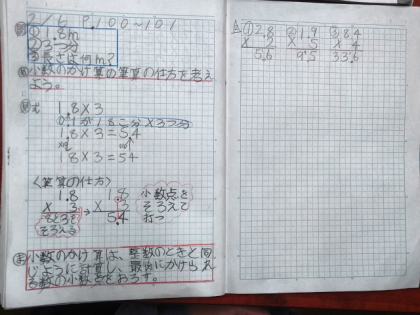 2/6 P.100~101
問 ①1.8m
②3つ分
③長さは何m?
め 小数のかけ算の筆算の仕方を考え
よう。
式
1.8×3
0.1が18こ分×3つ分
1.8×3=5.4
18×3=54
〈筆算の仕方〉
1.8
× 3
右はしを
そろえる
→
1.8
× 3
5.4
小数点を
そろえて
打つ
ま 小数のかけ算は、整数のときと同
じように計算し、最後にかけられ
る数の小数点をおろす。
① 2.8
× 2
5.6
② 1.9
× 5
9.5
③ 8.4
× 4
33.6